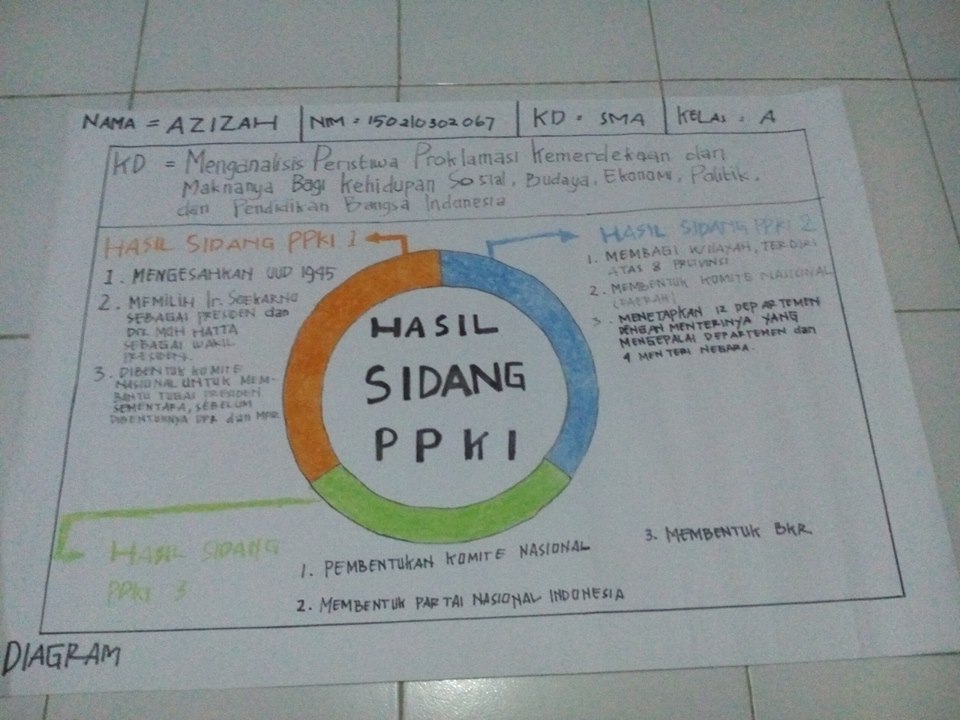 NAMA = AZIZAH
NIM = 150210302067
KD = SMA
KELAS = A
KD = Menganalisis Peristiwa Proklamasi Kemerdekaan dan
Maknanya Bagi Kehidupan Sosial, Budaya, Ekonomi, Politik,
dan Pendidikan Bangsa Indonesia
HASIL SIDANG PPKI 1
1. MENGESAHKAN UUD 1945
2. MEMILIH Ir. SOEKARNO
SEBAGAI PRESIDEN dan
Drs. MOH HATTA
SEBAGAI WAKIL
PRESIDEN.
3. DIBENTUK KOMITE
NASIONAL UNTUK MEM-
BANTU TUGAS PRESIDEN
SEMENTARA, SEBELUM
DIBENTUKNYA DPR dan MPR
HASIL SIDANG PPKI 2
1. MEMBAGI WILAYAH, TERDIRI
ATAS 8 PROVINSI
2. MEMBENTUK KOMITE NASIONAL
(DAERAH)
3. MENETAPKAN 12 DEPARTEMEN
DENGAN MENTERINYA YANG
MENGEPALAI DEPARTEMEN dan
4 MENTERI NEGARA.
HASIL
SIDANG
PPKI
HASIL SIDANG
PPKI 3
1. PEMBENTUKAN KOMITE NASIONAL
2. MEMBENTUK PARTAI NASIONAL INDONESIA
3. MEMBENTUK BKR
DIAGRAM